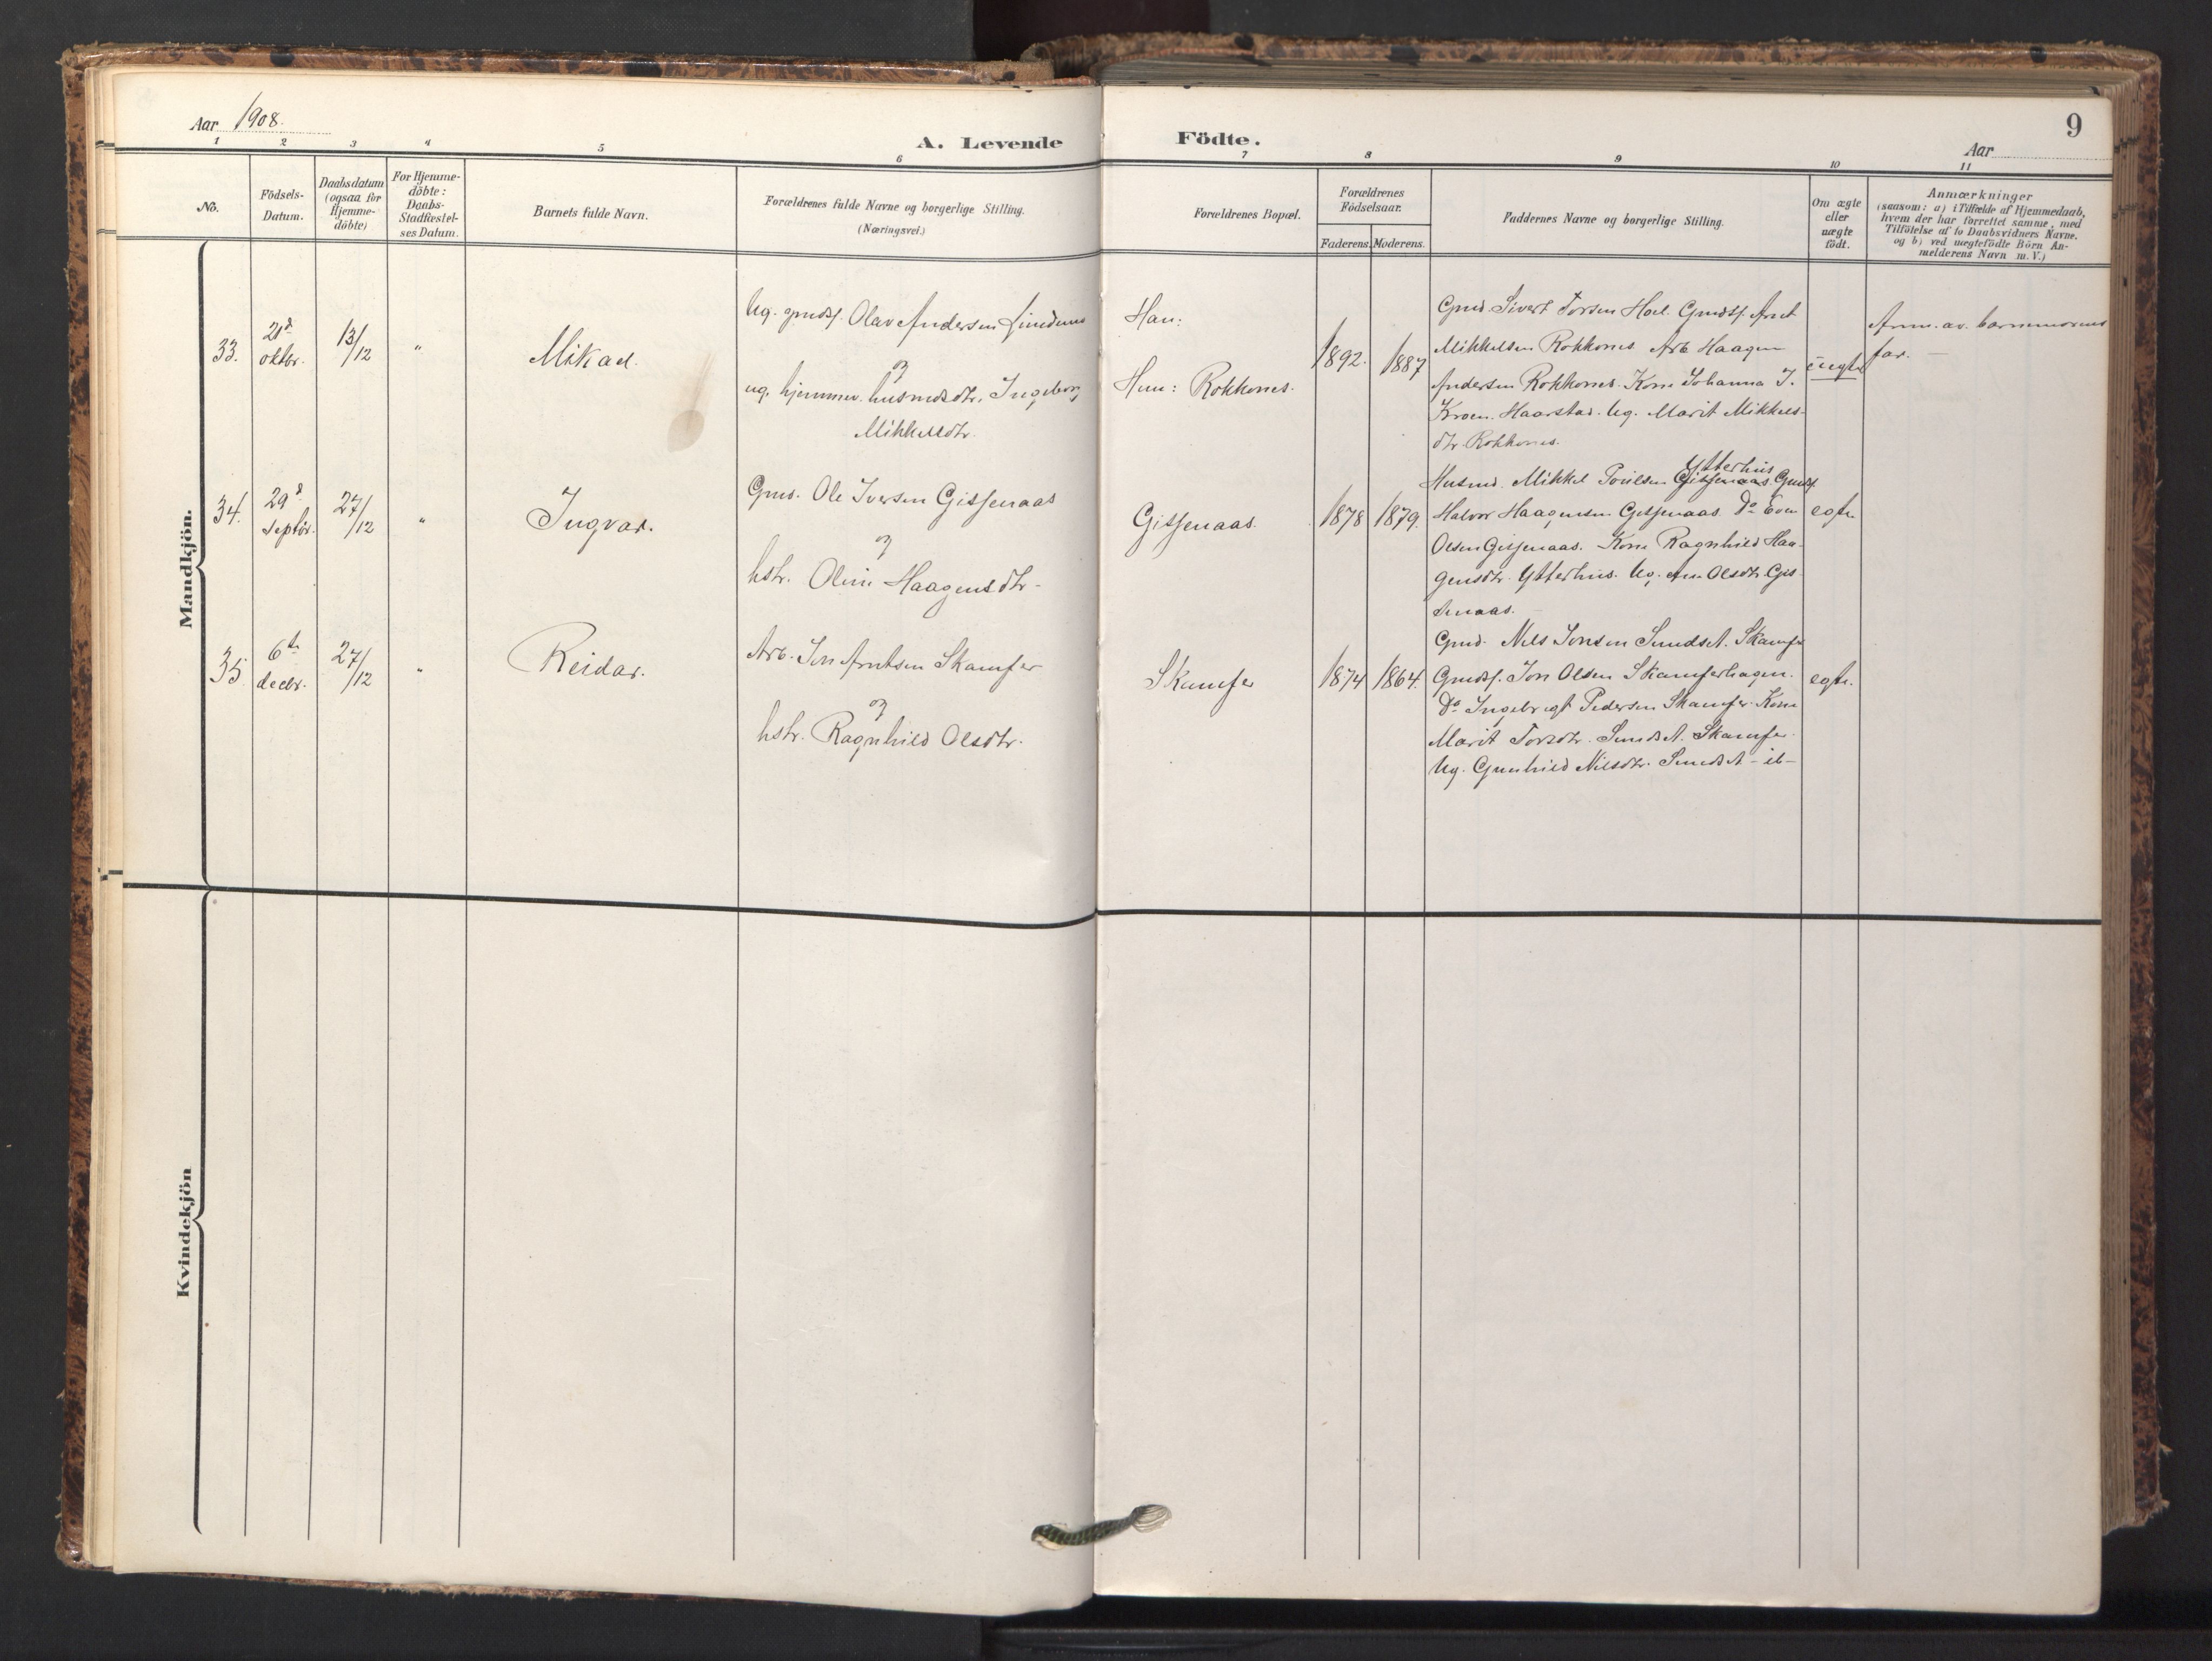 Aar 1908.
A. Levende Födte.
9
Aar
1 2 3 4 5 6 7 8 9 10 11
No.
Födsels-
Datum.
Daabsdatum
(ogsaa for
Hjemme-
döbte)
For Hjemme-
döbte:
Daabs-
Stadfæstel-
ses Datum.
Barnets fulde Navn.
Forældrenes fulde Navne og borgerlige Stilling.
(Næringsvei.)
Forældrenes Bopæl.
Forældrenes
Födselsaar.
Faderens. Moderens.
Faddernes Navne og borgerlige Stilling.
Om ægte
eller
uægte
födt.
Anmærkninger
(saasom: a) i Tilfælde af Hjemmedaab,
hvem der har forrettet samme, med
Tilföielse af to Daabsvidners Navne.
og b) ved uægtefödte Börn An-
melderens Navn m. V.)
Mandkjön.
33.
21d
oktbr.
13/12
"
Mikael.
Ug. gmdsf. Olav Andersen
og
ug. hjemmev. husmdsdtr. Ingeborg
Mikkelsdtr.
Han:
Hun: Rokkones.
1892.
1887
Gmd. Sivert Torsen Hoel. Gmdsf. Arnt
Mikkelsen Rokkones. Arb. Haagen
Andersen Rokkones. Kone Johanna J.
Kroen. Haarstad. Ug. Marit Mikkels-
dtr. Rokkones.
uegte
Anm. av barnmorens
far. —
34.
29d
septbr.
27/12
"
Ingvar.
Gmd. Ole Iversen Gisnaas
og
hstr. Oline Haagensdtr.
Gisnaas.
1878
1879.
Ytterhus
Husmd. Mikkel Poulsen Gisnaas. Gmdsf
Halvor Haagensen Gisnaas. Do Even
Olsen Gisnaas. Kone Ragnhild Haa-
gensdtr. Ytterhus. Ug. Ane Olsdtr. Gis-
naas. —
egte.
35
6te
decbr.
27/12
"
Reidar.
Arb. Jon Arntsen Skamfer
og
hstr. Ragnhild Olsdtr.
Skamfer
1874
1864.
Gmd. Nils Jonsen Sundset. Skamfer
Gmdsf. Jon Olsen Skamferhagen.
Do Ingebrigt Pedersen Skamfer. Kone
Marit Torsdtr. Sundset. Skamfer.
Ug. Gunhild Nilsdtr. Sundset – ib –
egte.
Kvindekjön